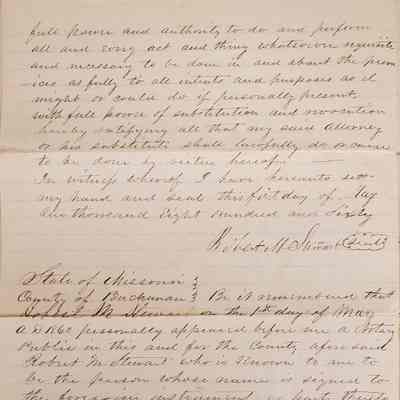 full power and authority to do and perform
all and every act and thing whatsoever requisite
and necessary to be done in and about the prem
ices as fully to all intents and purposes as I
might or could do if personally present,
with full power of substitution and revocation
hereby ratifying all that my said Attorney
or his substitute shall lawfully do or cause
to be done by virtue hereof —
In witness whereof I have hereunto set
my hand and seal this first day of May
one thousand Eight hundred and Sixty
Robert M Stewart (Seal)
State of Missouri }
County of Buchanan } Be it remembered that
on the 1st day of May
A D 1860 personally appeared before me a Notary
Public in this and for the County aforesaid
Robert M Stewart who is Known to me to
be the person whose name is signed to
the foregoing instrument as party thereto